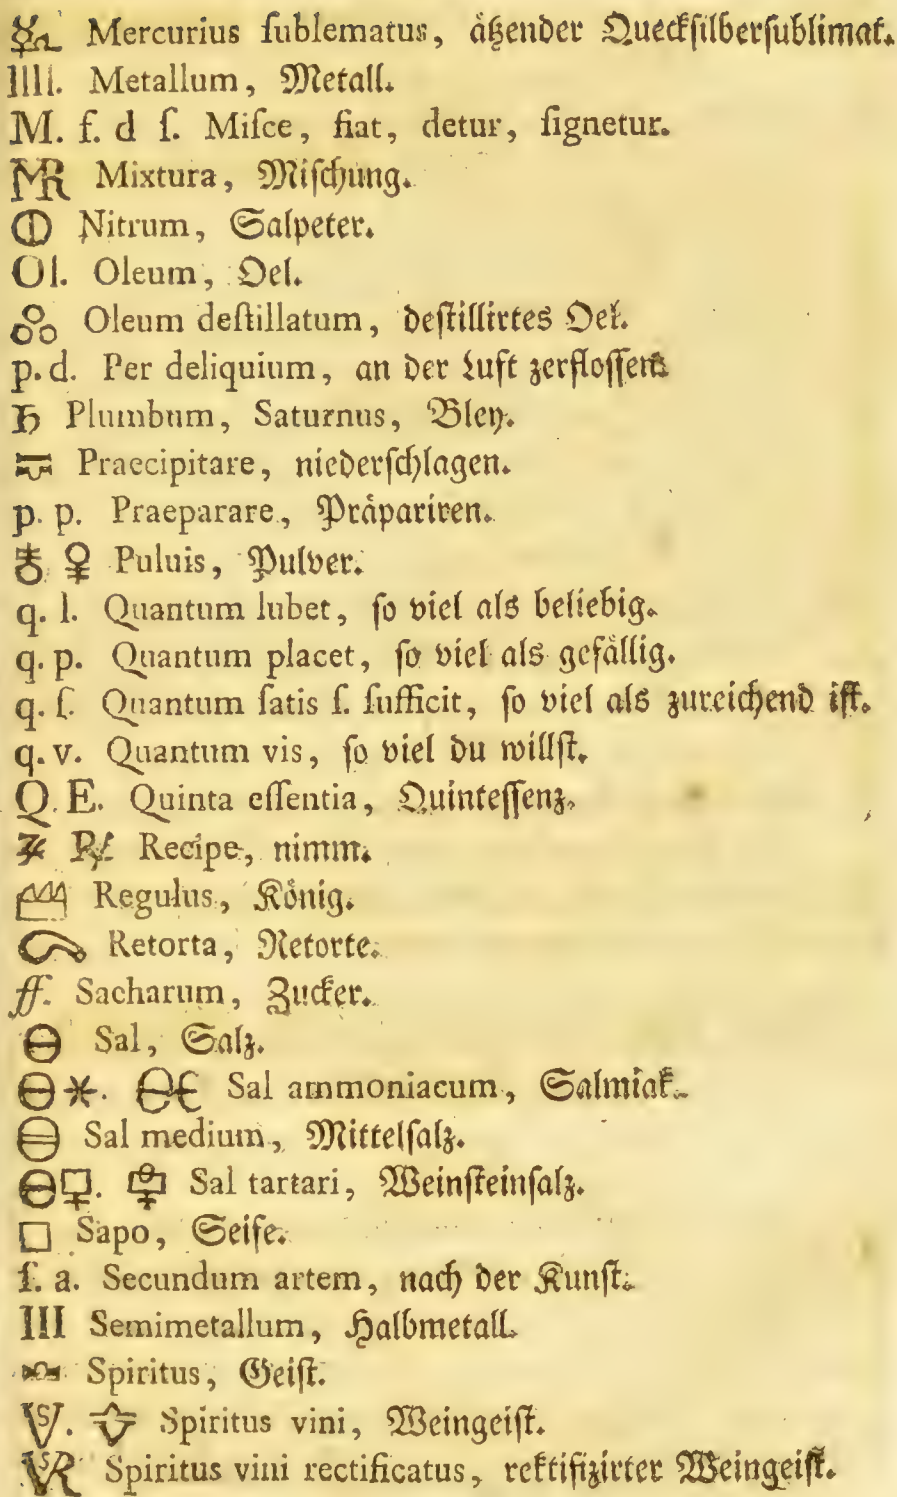 ☿ Mercurius ſublematus, åtzender Queckſilberſublimat.
IIII. Metallum, Metall.
M. f. d ſ. Miſce, fiat, detur, ſignetur.
MR Mixtura, Miſchung.
⦶ Nitrum, Salpeter.
Ol. Oleum, Oel.
Oleum deſtillatum, deſtillirtes Oel.
p. d. Per deliquium, an der Luft zerfloſſen.
♄ Plumbum, Saturnus, Bley.
Praecipitare, niederſchlagen.
p. p. Praeparare, Pråpariren.
♁ ♀ Puluis, Pulver.
q. l. Quantum lubet, ſo viel als beliebig.
q. p. Quantum placet, ſo viel als gefållig.
q. ſ. Quantum ſatis ſ. ſufficit, ſo viel als zureichend iſt.
q. v. Quantum vis, ſo viel du willſt.
Q. E. Quinta eſſentia, Quinteſſenz.
♃ ℞ Recipe, nimm.
Regulus, Kônig.
Retorta, Retorte.
ff. Sacharum, Zucker.
⊖ Sal, Salz.
⊖*. Sal ammoniacum, Salmiak.
Sal medium, Mittelſalz.
Sal tartari, Weinſteinſalz.
□ Sapo, Seife.
ſ. a. Secundum artem, nach der Kunſt.
III Semimetallum, Halbmetall.
Spiritus, Geiſt.
Spiritus vini, Weingeiſt.
Spiritus vini rectificatus, rektifizirter Weingeiſt.